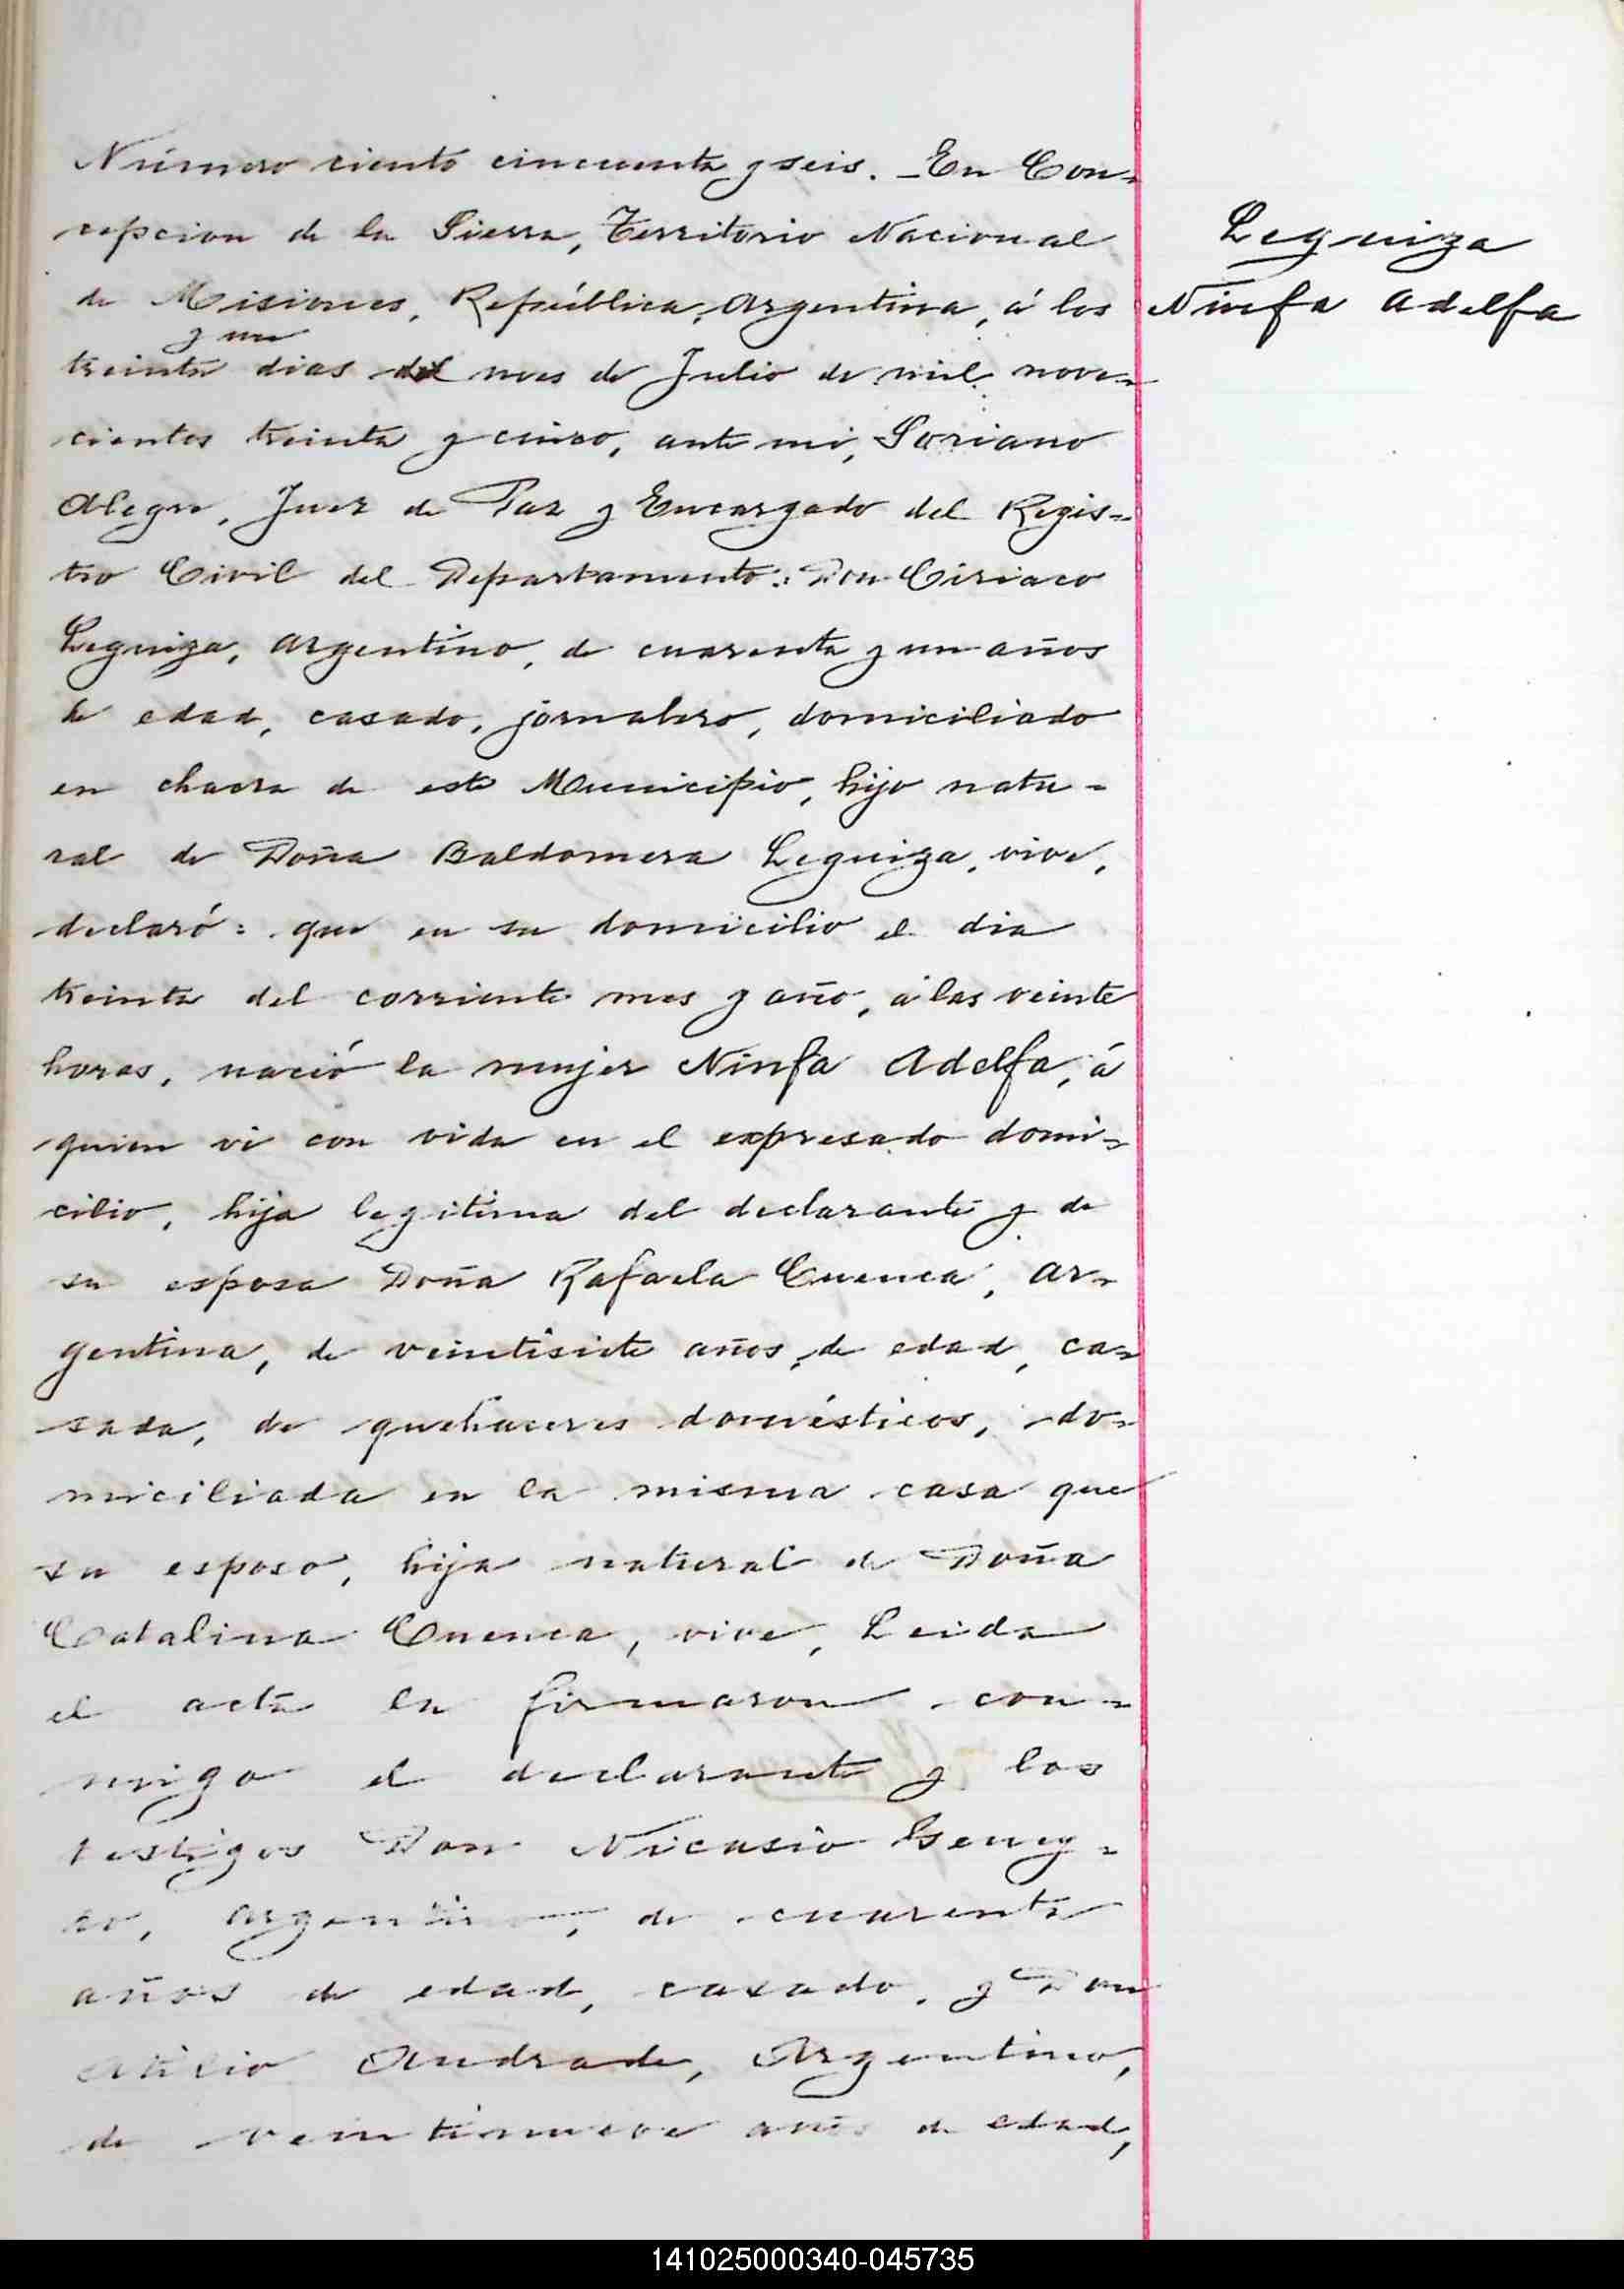 Número ciento cincuenta y seis. - En Con-
cepcion de la Sierra, Territorio Nacional
de Misiones, República Argentina, á los
y un
treinta dias del mes de Julio de mil nove-
cientos treinta y cinco, ante mi, Soriano
Alegre, Juez de Paz y Encargado del Regis-
tro Civil del Departamento: Don Ciriaco
Leguiza, argentino, de cuarenta y un años
de edad, casado, jornalero, domiciliado
en chacra de este Municipio, hijo natu-
ral de Doña Baldomera Leguiza, vive,
declaró: que en su domicilio el dia
treinta del corriente mes y año, á las veinte
horas, nació la mujer Ninfa Adelfa, á
quien vi con vida en el expresado domi-
cilio, hija legitima del declarante y de
su esposa Doña Rafaela Cuenca, ar-
gentina, de veintisiete años de edad, ca-
sada, de quehaceres domésticos, do-
miciliada en la misma casa que
su esposo, hija natural de Doña
Catalina Cuenca, vive, Leida
el acta la firmaron con-
migo el declarante y los
testigos Don Nicasio
argentino, de cuarenta
años de edad, casado, y Don
Atilio Andrade, Argentino,
de veintinueve años de edad,
Leguiza
Ninfa Adelfa
141025000340-045735